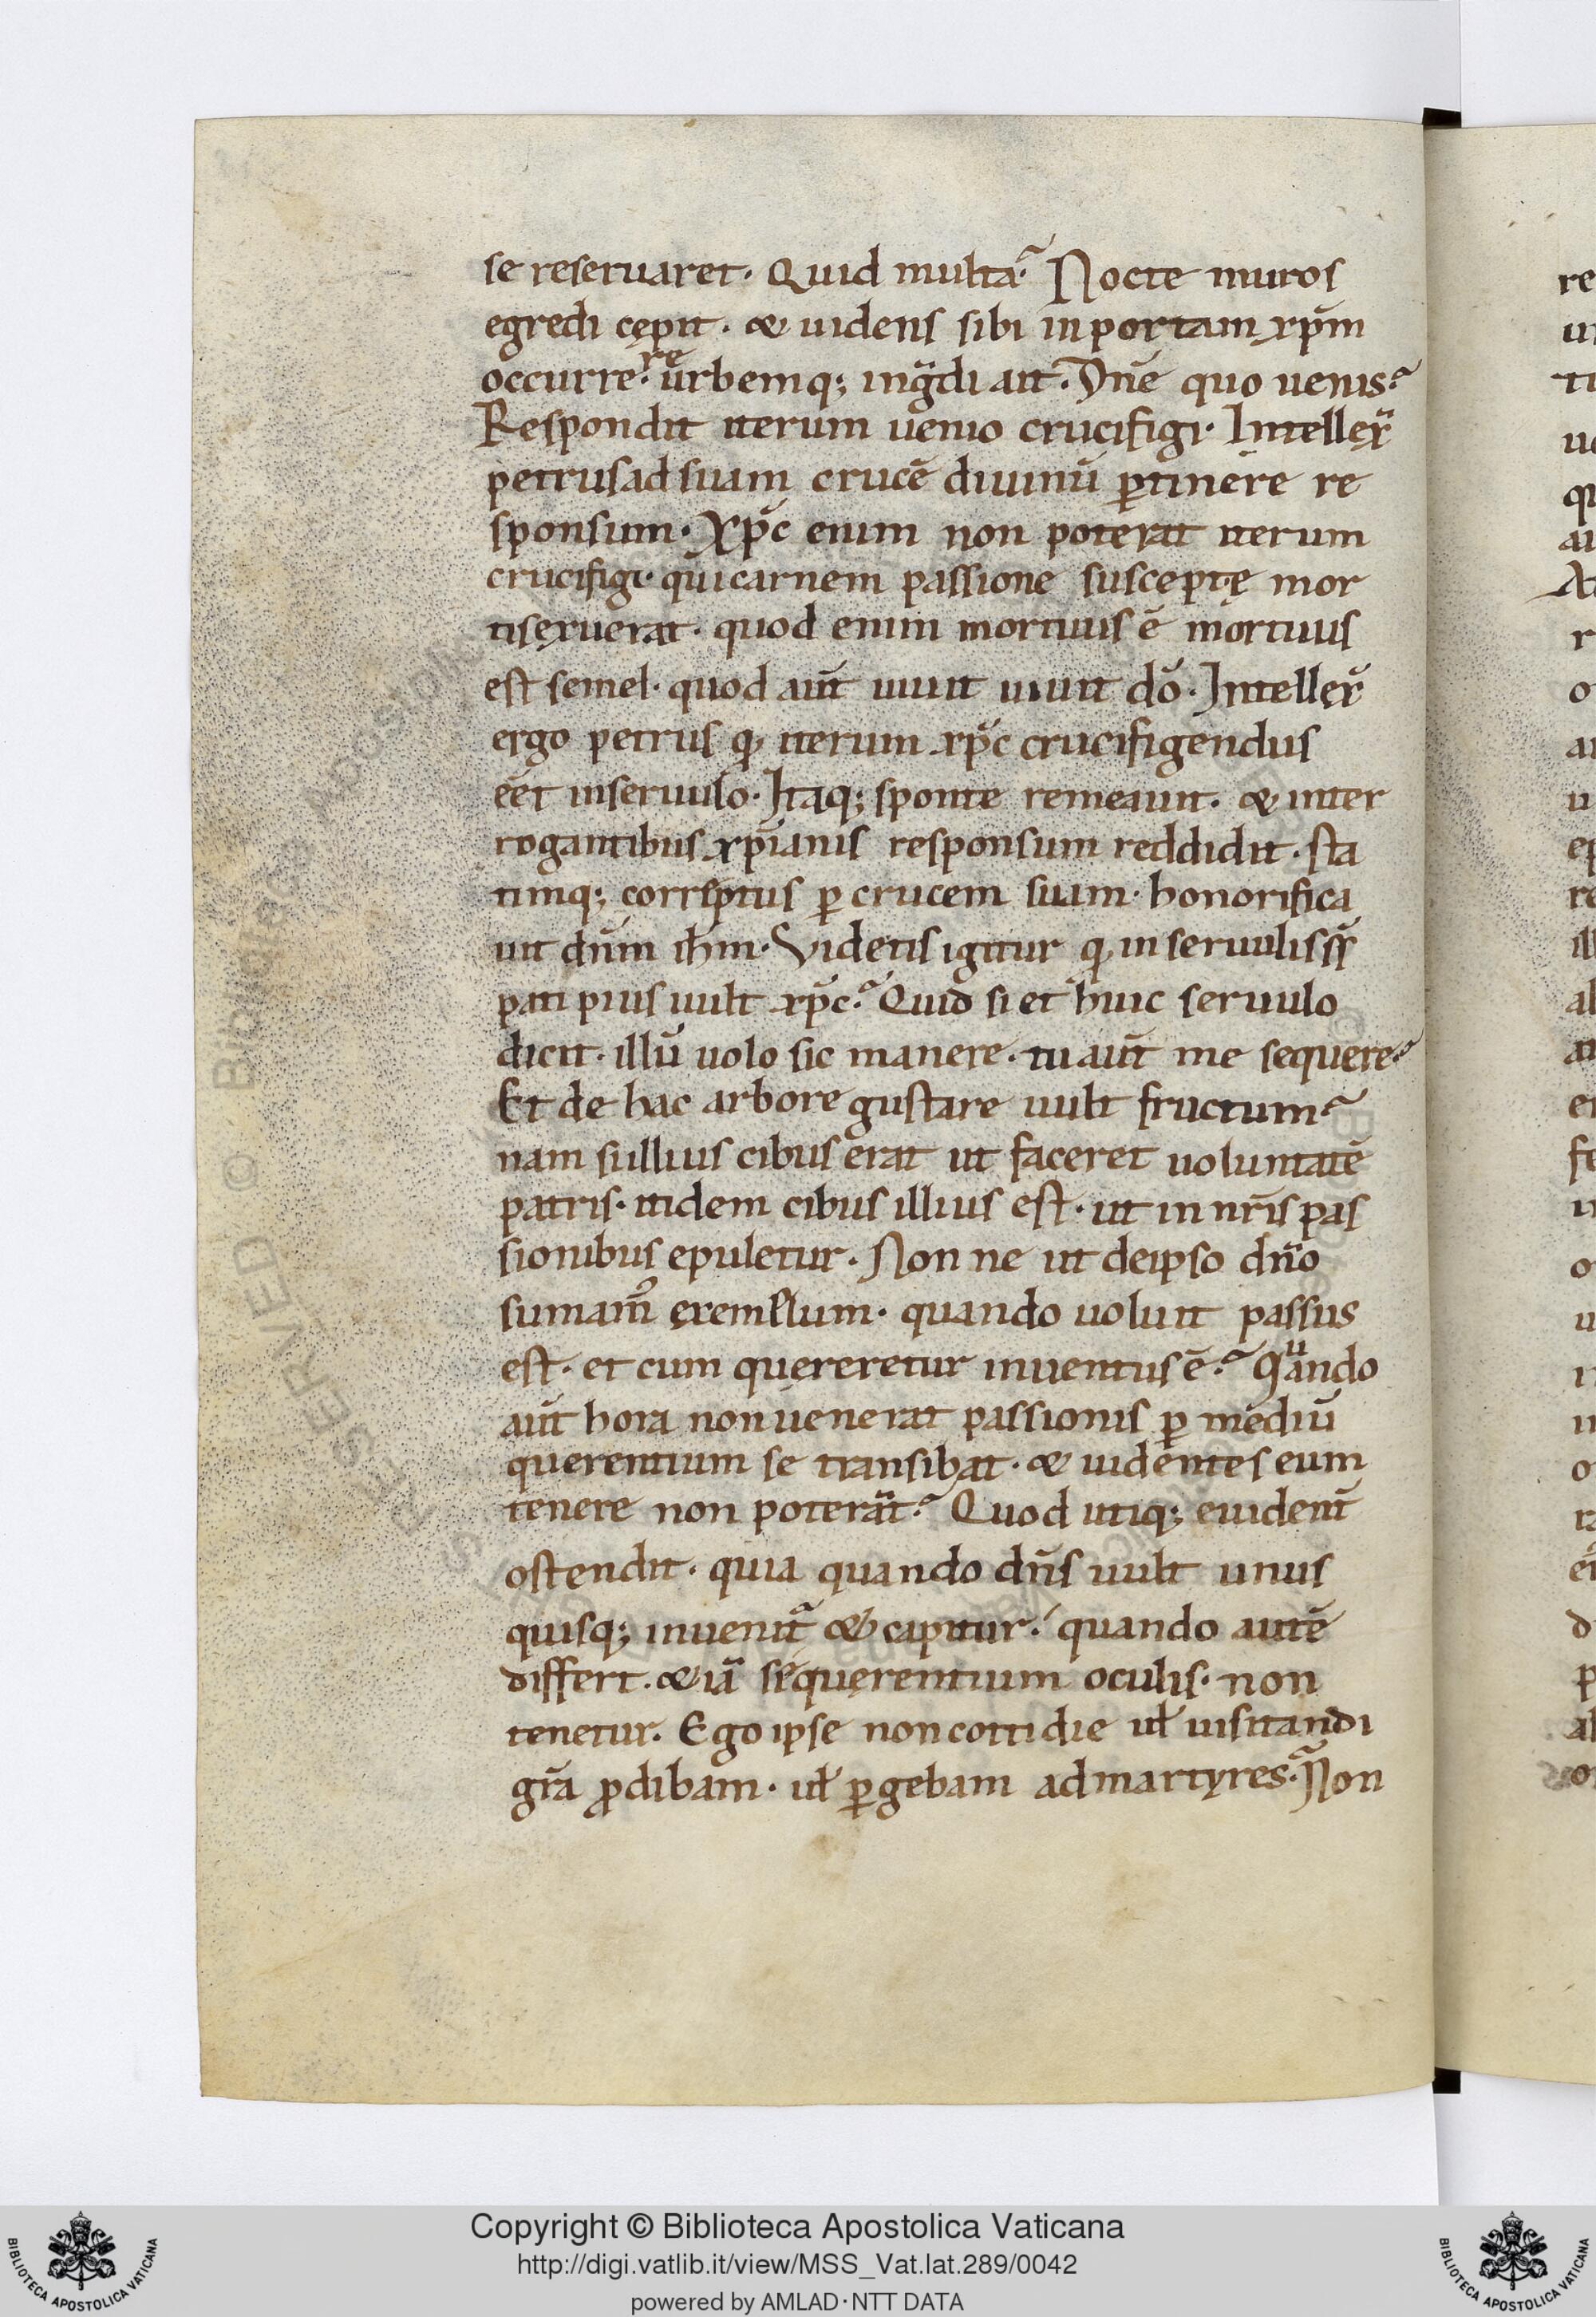 se reseruaret. Quid multa? Nocte muros
egredi cępit. & uidens sibi in portam xp̄m
occurre.re urbemq; ingͣdi ait. Dn̄e quo uenis?
Respondit iterum uenio crucifigi. Intellexͣ
petrus ad suam crucē diuinū ꝑtinere re
sponsum. Xp̄c enim non poterat iterum
crucifigi. qui carnem passione susceptę mor
tis exuerat. quod enim mortuus ē mortuus
est semel. quod aūt uiuit uiuit dō. Intellex̄
ergo petrus qꝫ iterum xp̄c crucifigendus
eēt in seruulo. Itaq; sponte remeauit. & inter
rogantibus xp̄ianis responsum reddidit. sta
timq; correptus ꝑ crucem suam. honorifica
uit dn̄m ih̄m. Videtis igitur qꝫ in seruulis
pati pius uult xp̄c? Quid si et huic seruulo
dicit. illū uolo sic manere. tu aūt me sequere?
Et de hac arbore gustare uult fructum?
nam si illius cibus erat ut faceret uoluntatē
patris. itidem cibus illius est. ut in nr̄is pas
sionibus epuletur. Non ne ut de ipso dn̄o
sumam᷒ exemplum. quando uoluit passus
est. et cum quęreretur inuentus ē? Quando
aūt hora non uenerat passionis ꝑ mediū
querentium se transibat. & uidentes eum
tenere non poterāt? Quod utiq; euident̄
ostendit. quia quando dn̄s uult unus
quisq; inuenit᷑ & capitur. quando autē
differt. & iā se quęrentium oculis. non
tenetur. Ego ipse non cottidie uł uisitandi
gr̄a ꝓdibam. uł ꝑgebam ad martyres? Non
Copyright © Biblioteca Apostolica Vaticana
http://digi.vatlib.it/view/MSS_Vat.lat.289/0042
powered by AMLAD·NTT DATA
BIBLIOTECA APOSTOLICA VATICANA
BIBLIOTECA APOSTOLICA VATICANA